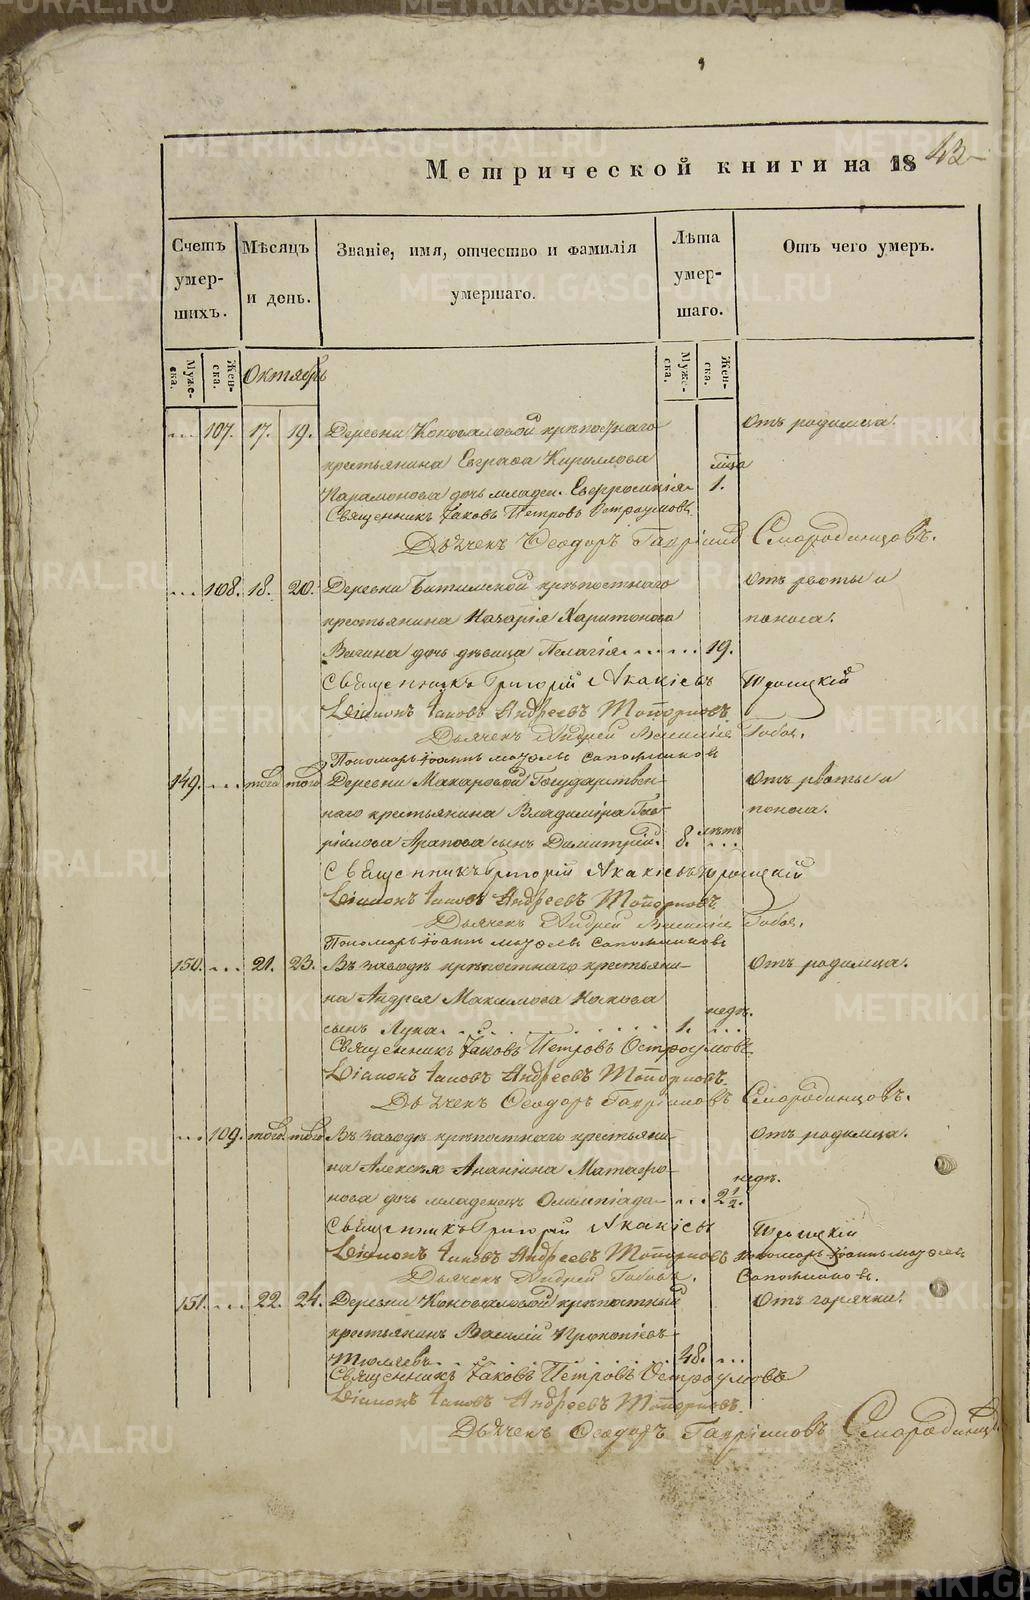 Метрической книги на 1843
Счетъ умер-шихъ.
Мѣсяцъ и день.
Званіе, имя, отчество и фамилія умершаго.
Лѣта умер-шаго.
Отъ чего умеръ.
Муже-ска. Жен-ска. Октябрь Муже-ска. Жен-ска.
107. 17. 19. Деревни Коноваловой крѣпостнаго Отъ родимца.
крестьянина Евграфа Кириллова
Парамонова дочь младен. Евфросинія 1.
Священникъ Іаковъ Петровъ Остроумовъ
Дьячекъ Ѳеодоръ Гавріиловъ Смородинцовъ.
108. 18. 20. Деревни крѣпостнаго Отъ рвоты и
крестьянина Назарія Харитонова поноса.
Вагина дочь дѣвица Пелагія 19.
Священникъ Григорій Акакіевъ Троицкій
Діаконъ Іаковъ Андреевъ Топорковъ
Дьячекъ Андрей Василіевъ
Пономарь Іоаннъ Сапожниковъ
149. того того Деревни Макаровой Государствен- Отъ рвоты и
наго крестьянина Владиміра Гав- поноса.
ріилова Арапова сынъ Димитрій. 8. лѣтъ
Священникъ Григорій Акакіевъ Троицкій
Діаконъ Іаковъ Андреевъ Топорковъ
Дьячекъ Андрей Василіевъ
Пономарь Іоаннъ Сапожниковъ
150. 21. 23. Въ заводѣ крѣпостнаго крестьяни- Отъ родимца.
на Андрея Максимова недѣ.
сынъ Лука 1.
Священникъ Іаковъ Петровъ Остроумовъ
Діаконъ Іаковъ Андреевъ Топорковъ.
Дьячекъ Ѳеодоръ Гавріиловъ Смородинцовъ.
109. того того Въ заводѣ крѣпостнаго крестьяни- Отъ родимца.
на Алексѣя Ананіина Матафо- недѣ.
нова дочь младенецъ Олимпіада 2 1/2.
Священникъ Григорій Акакіевъ Троицкій
Діаконъ Іаковъ Андреевъ Топорковъ Пономарь Іоаннъ
Дьячекъ Андрей Сапожниковъ.
151. 22. 24. Деревни Коноваловой крѣпостный Отъ горячки.
крестьянинъ Василій Прокопіевъ
48.
Священникъ Іаковъ Петровъ Остроумовъ
Діаконъ Іаковъ Андреевъ Топорковъ.
Дьячекъ Ѳеодоръ Гавріиловъ Смородинц
METRIKI.GASO-URAL.RU